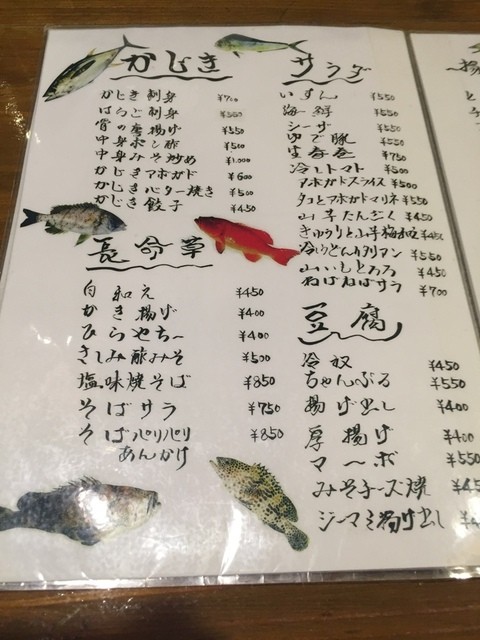 かじき
かじき刺身 ¥700
はらご刺身 ¥550
骨の唐揚げ ¥550
中身ポン酢 ¥500
中身みそ炒め ¥1,000
かじきアボガド ¥600
かじきバター焼き ¥500
かじき餃子 ¥450
長命草
白和え ¥450
かき揚げ ¥400
ひらやちー ¥400
さしみ酢みそ ¥500
塩味焼そば ¥850
そばサラ ¥750
そばパリパリ ¥850
あんかけ
サラダ
いすん ¥550
海鮮 ¥550
シーザ ¥550
ゆで豚 ¥550
生春巻 ¥750
冷しトマト ¥500
アボガドスライス ¥500
タコとアボガドマリネ ¥550
山芋たんざく ¥450
きゅうりと山芋梅和え ¥450
冷やしどんイタリアン ¥550
山いもとろろ ¥450
ねばねばサラ ¥700
豆腐
冷奴 ¥450
ちゃんぷる ¥550
揚げ出し ¥400
厚揚げ ¥400
マーボ ¥550
みそチーズ焼
ジーマミ揚げ出し